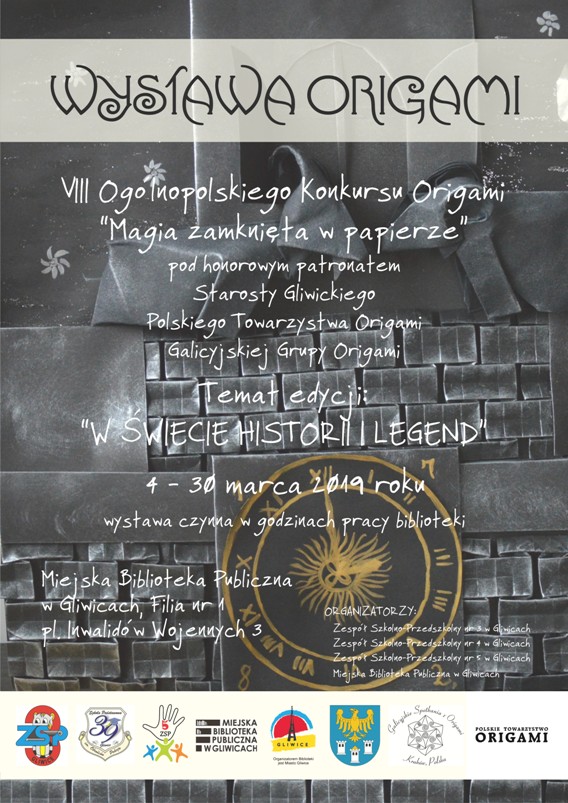 WYSTAWA ORIGAMI
VIII Ogólnopolskiego Konkursu Origami
"Magia zamknięta w papierze"
pod honorowym patronatem
Starosty Gliwickiego
Polskiego Towarzystwa Origami
Galicyjskiej Grupy Origami
Temat edycji:
"W ŚWIECIE HISTORII I LEGEND"
4 - 30 marca 2019 roku
wystawa czynna w godzinach pracy biblioteki
Miejska Biblioteka Publiczna
w Gliwicach, Filia nr 1
pl. Inwalidów Wojennych 3
ORGANIZATORZY:
Zespół Szkolno-Przedszkolny nr 3 w Gliwicach
Zespół Szkolno-Przedszkolny nr 4 w Gliwicach
Zespół Szkolno-Przedszkolny nr 5 w Gliwicach
Miejska Biblioteka Publiczna w Gliwicach
XII
I
II
III
V
VI
VII
7
8
2
ZSP
GLIWICE
Szkoła Podstawowa
39
5
ZSP
MIEJSKA
BIBLIOTEKA
PUBLICZNA
W GLIWICACH
GLIWICE
Organizatorem Biblioteki
jest Miasto Gliwice
Galicyjskie Spotkania z Origami
Kraków, Polska
POLSKIE TOWARZYSTWO
ORIGAMI